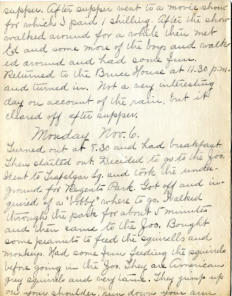 supper. After supper went to a movie show
for which I paid 1 shilling. After the show
walked around for a while then met
Ed and some more of the boys and walk-
ed around and had some fun.
Returned to the Bruce House at 11.30 p.m.
and turned in. Not a very interesting
day on account of the rain, but it
cleared off after supper.
Monday Nov. 6.
Turned out at 8.30 and had breakfast
Then started out. Decided to go to the Zoo.
Went to Trafalgar Sq. and took the under-
ground for Regents Park. Got off and in-
quired of a "Bobby" where to go. Walked
through the park for about 5 minutes
and then came to the Zoo. Bought
some peanuts to feed the squirrells and
monkeys. Had some fun feeding the squirrels
before going in the Zoo. They are American
grey squirrels and very tame. They jump up
on your shoulder, run down your arm